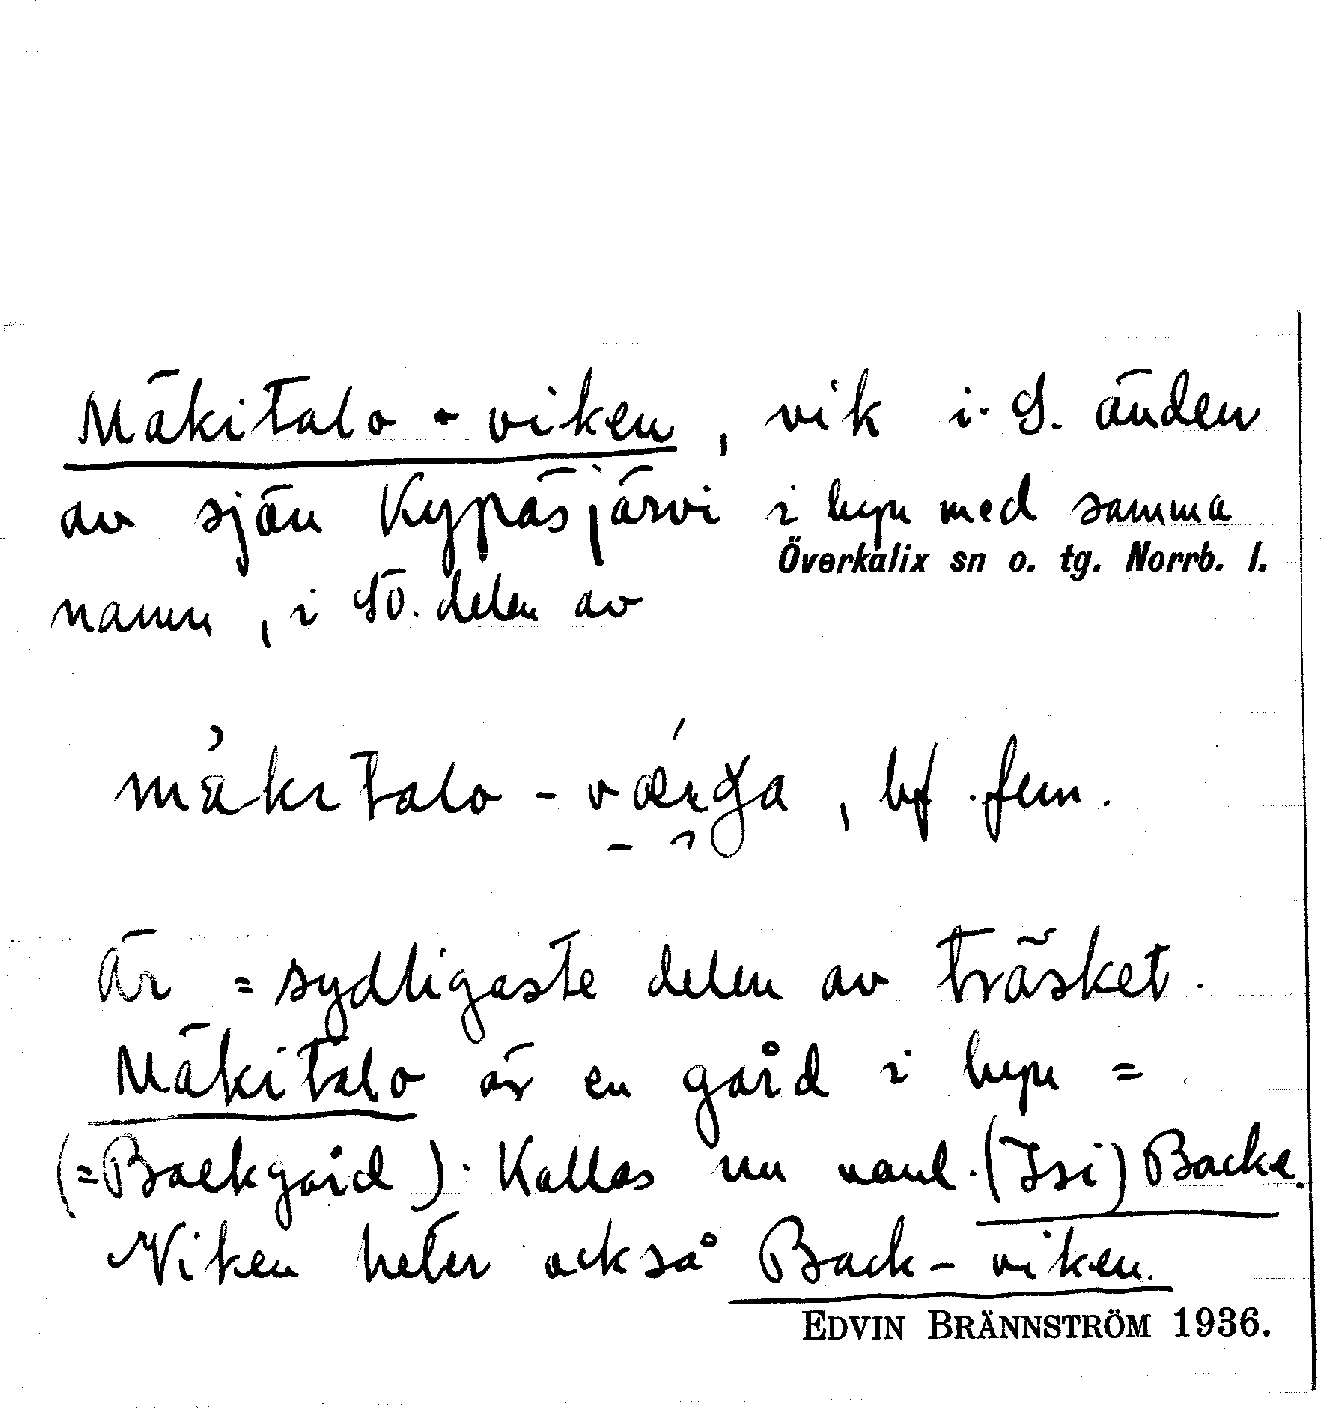 Mäkitalo-viken, vik i S. änden
av sjön Kypäsjärvi i byn med samma
Överkalix sn o. tg. Norrb. l.
namn, i SÖ. delen av
mäkitalo-, bf. fem.
Är = sydligaste delen av träsket.
Mäkitalo är en gård i byn =
(=Backgård). Kallas nu vanl. (Isi) Backa.
Viken heter också Back-viken.
EDVIN BRÄNNSTRÖM 1936.